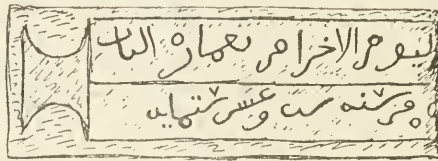 ليوم الاخر امر بعماره الباب
من سنه ست وعشر ستمايه